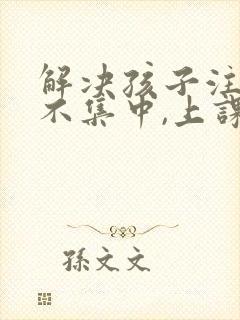 解决孩子注
不集中,上課
孫文文